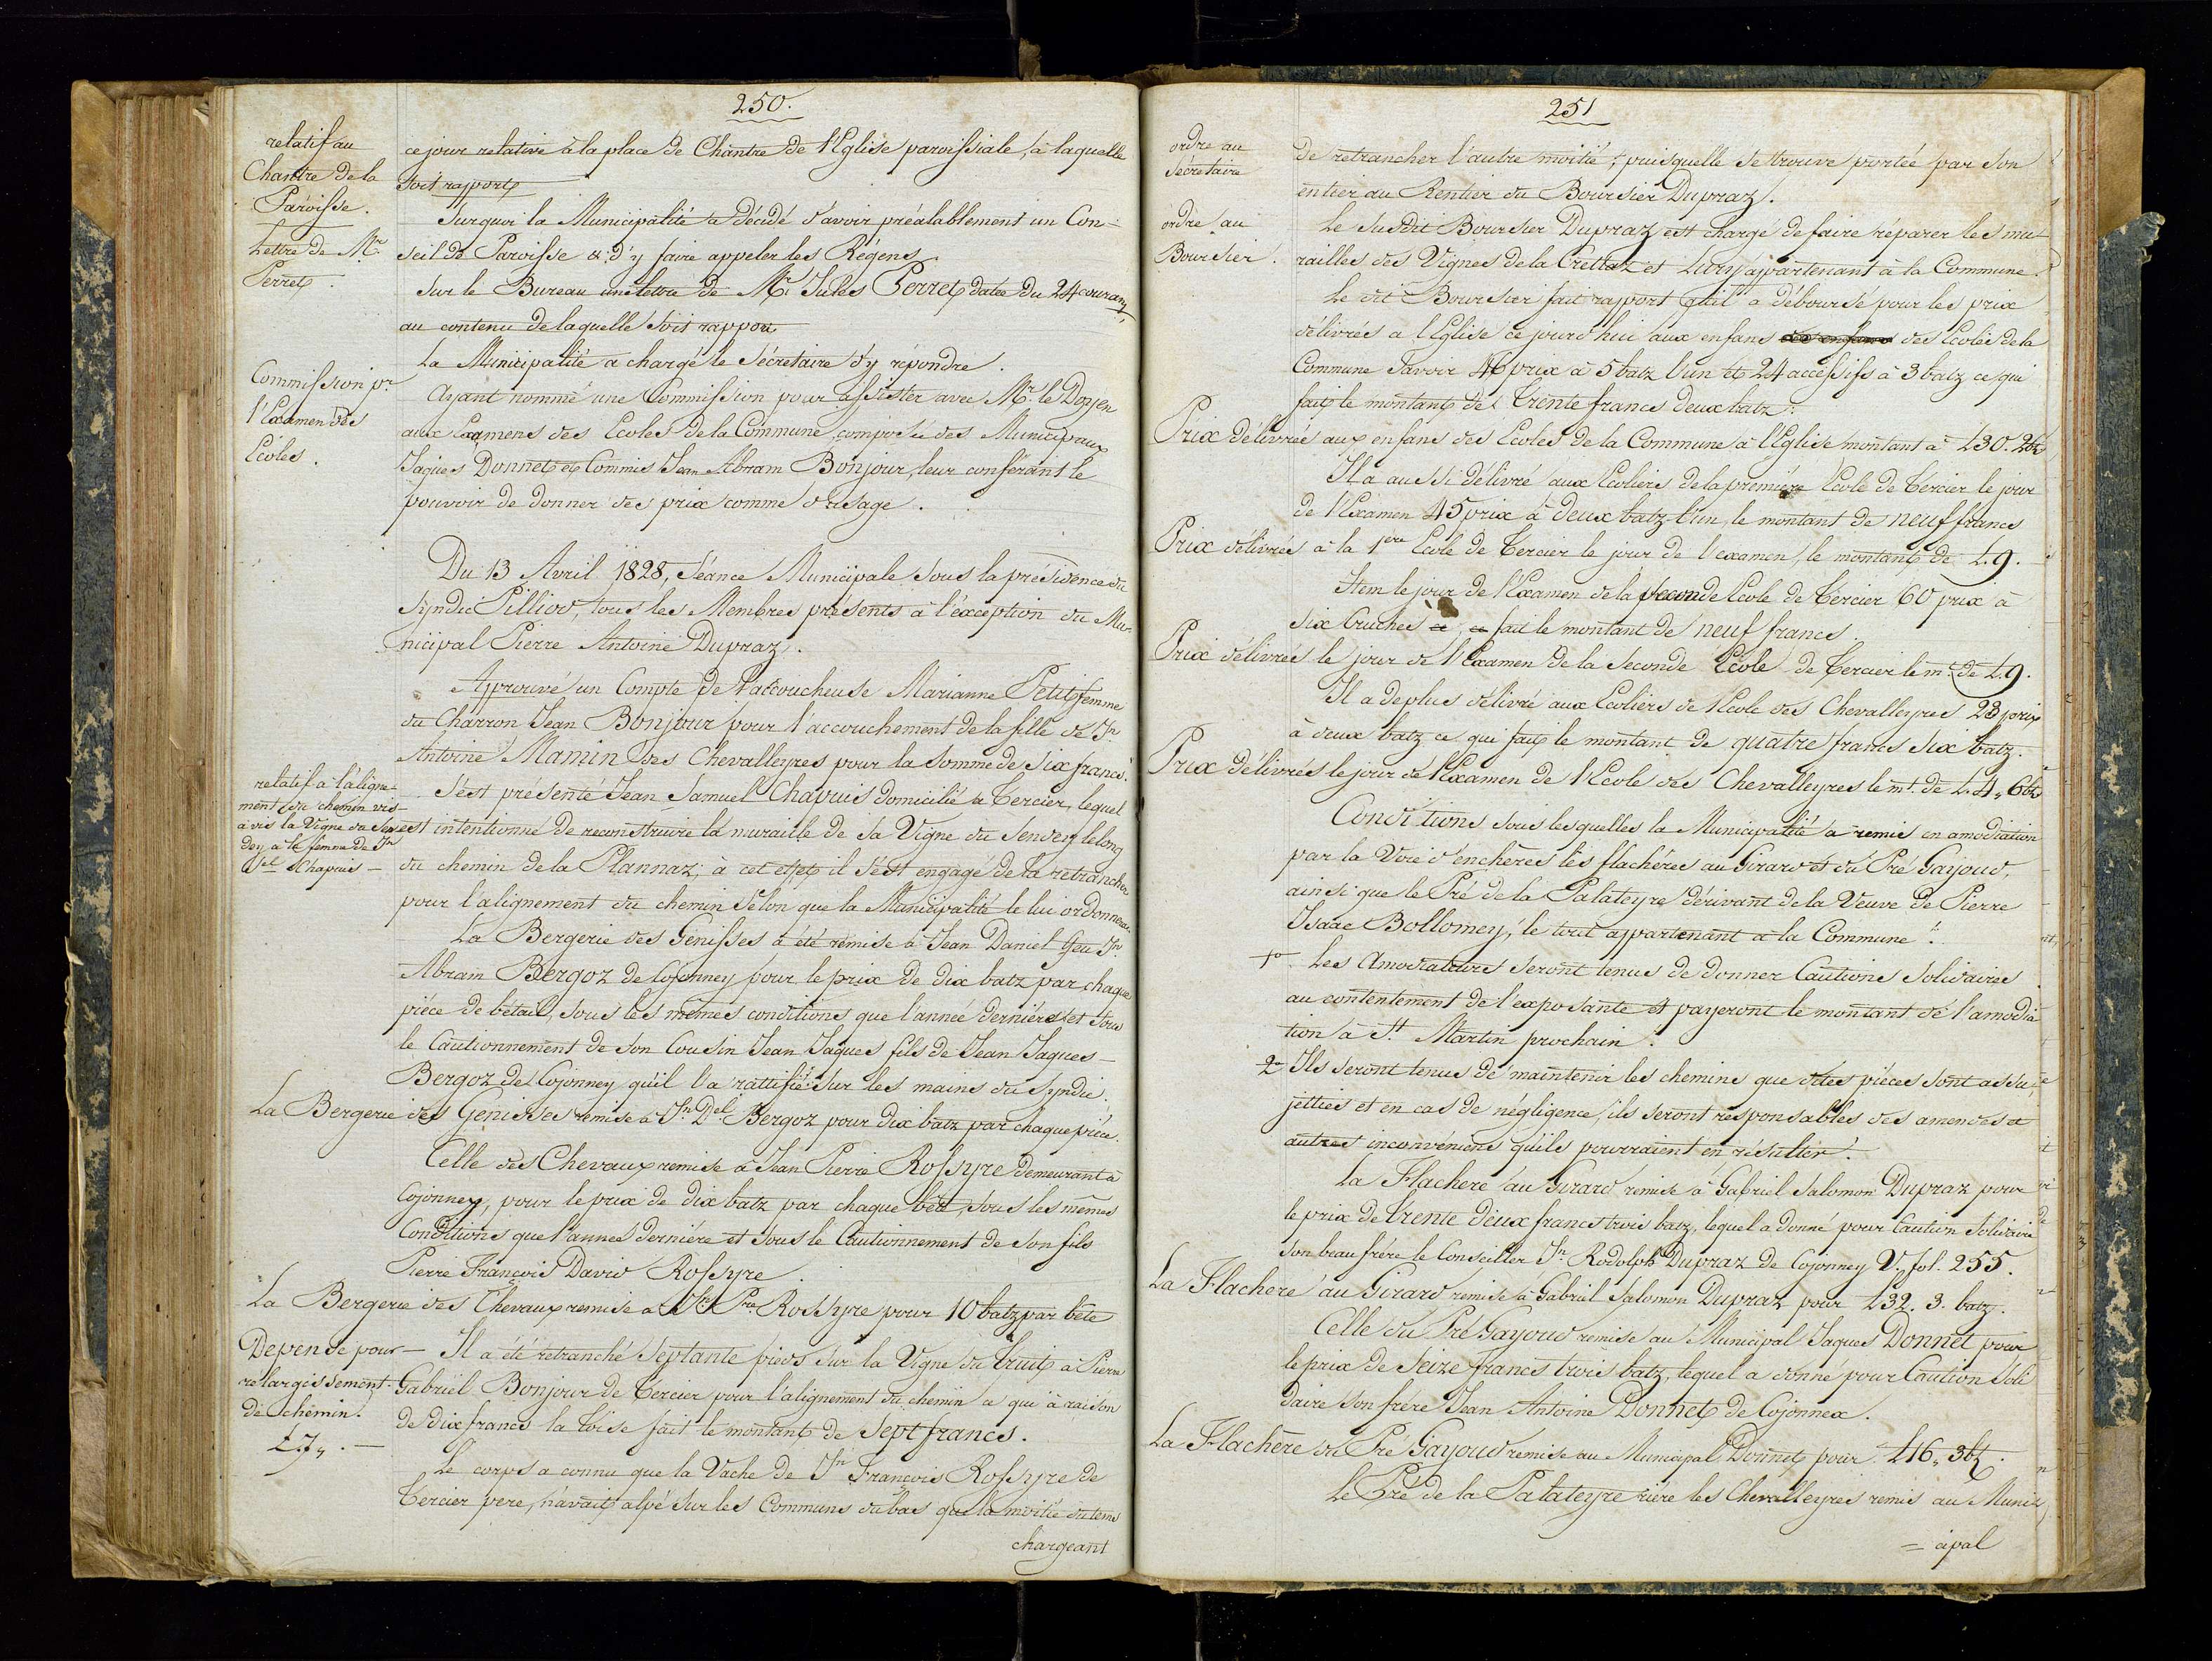 250.
relatif au
Chantre de la
Paroisse.
ce jour relative à la place de Chantre de l'Eglise paroissiale, à laquelle
soit rapport
Surquoi la Municipalité a décidé d'avoir préalablement un Con-
seil de Paroisse & d'y faire appeler les Régens.
Lettre de Mr
Perret.
Sur le Bureau une lettre de Mr Jules Perret datée du 24 courant,
au contenu de laquelle soit rapport
La Municipalité a chargé le Sécretaire d'y répondre.
Commission pr
l'Examen des
Ecoles.
Ayant nommé une Commission pour assister avec Mr le Doyen
aux Examens des Ecoles de la Commune, composée des Municipaux
Jaques Donnet et Commis Jean Abram Bonjour, leur conférant le
pouvoir de donner des prix comme d'usage.
Du 13 Avril 1828, Séance Municipale sous la présidence du
Syndic Pilliod, tous les Membres présents à l'éxception du Mu-
nicipal Pierre Antoine Dupraz.
Approuvé un Compte de l'accoucheuse Marianne Petit femme
du Charron Jean Bonjour pour l'accouchement de la fille de Jn
Antoine Mamin des Chevalleyres pour la somme de Six francs.
relatif à l'aligne-
ment du chemin vis-
à vis la Vigne du Sen
dey à la femme de Jn
Sel Chapuis -
S'est présenté Jean Samuel Chapuis domicilié à Tercier, lequel
est intentionné de reconstruire la muraille de sa Vigne du Sendey le long
du chemin de la Plannaz; à cet effet il s'est engagé de la retrancher
pour l'alignement du chemin selon que la Municipalité le lui ordonnera
La Bergerie des Génisses a été remise à Jean Daniel feu Jn
Abram Bergoz de Cojonney pour le prix de dix batz par chaque
piéce de bétail, sous les mêmes conditions que l'année dernière et sous
le Cautionnement de son Cousin Jean Jaques fils de Jean Jaques
Bergoz de Cojonney qu'il l'a rattifié sur les mains du Syndic.
La Bergerie des Genisses remise à Jn Del Bergoz pour dix batz par chaque piéce.
Celle des Chevaux remise à Jean Pierre Rossyre demeurant à
Cojonney, pour le prix de dix batz par chaque bête, sous les mêmes
Conditions que l'année dernière et sous le Cautionnement de son fils
Pierre François David Rossyre.
La Bergerie des Chevaux remise à Jn Pre Rossyre pour 10 batz par bête
Depense pour
relargissement
de chemin.
L.7,, . -
Il a été retranché Septante pieds sur la Vigne du Truit à Pierre
Gabriel Bonjour de Tercier pour l'alignement du chemin ce qui à raison
de dix francs la toise fait le montant de Sept francs.
Le corps a connu que la Vache de Jn François Rossyre de
Tercier pere, n'avait alpé sur les Communs du bas que la moitié du tems
chargeant
251
ordre au
Sécretaire
de retrancher l'autre moitié; puisquelle se trouve portée par son
entier au Rentier du Boursier Dupraz.
ordre au
Boursier.
Le susdit Boursier Dupraz est chargé de faire réparer les mu-
railles des Vignes de la Crettaz et Lury appartenant à la Commune.
Le dit Boursier fait rapport qu'il a déboursé pour les prix
délivrés à l'Eglise ce jourd'hui aux enfans des enfans des Ecoles de la
Commune savoir 46 prix à 5 batz l'un et 24 accessifs à 3 batz ce qui
fait le montant de Trente francs deux batz.
Prix délivrés aux enfans des Ecoles de la Commune à l'Eglise montant à L30. 2bz
Il a aussi délivré aux Ecoliers de la première Ecole de Tercier le jour
de l'Examen 45 prix à deux batz l'un, le montant de neuf francs
Prix délivrés à la 1ere Ecole de Tercier le jour de l'examen, le montant de L.9.
Item le jour de l'Examen de la seconde Ecole de Tercier 60 prix à
Six Cruches ce, ce fait le montant de neuf francs.
Prix délivrés le jour de l'Examen de la Seconde Ecole de Tercier le mt. de L.9.
Il a de plus délivré aux Ecoliers de l'Ecole des Chevalleyres 23 prix
à deux batz ce qui fait le montant de quatre francs six batz.
Prix délivrés le jour de l'Examen de l'Ecole des Chevalleyres le mt. de L.4,, 6bz
Conditions sous lesquelles la Municipalité a remis en amodiation
par la Voie d'enchères les flachères au Girard et du Pré Gayoud,
ainsi que le Pré de la Palateyre dérivant de la Veuve de Pierre
Isaac Bollomey, le tout appartenant à la Commune.
1o. Les Amodiateurs seront tenus de donner Cautions solidaires
au contentement de l'exposante et payeront le montant de l'amodia
tion à St. Martin prochain.
2o Ils seront tenus de maintenir les chemins que dites pièces sont assu
jetties et en cas de négligence, ils seront responsables des amendes et
autres inconvéniens qu'ils pourraient en résulter.
La Flachere au Girard remise à Gabriel Salomon Dupraz pour
le prix de Trente deux francs trois batz, lequel a donné pour Caution Solidaire
son beau frére le Conseiller Jn Rodolph Dupraz de Cojonney V. fol. 255.
La Flachere au Girard remise à Gabriel Salomon Dupraz pour L32. 3. batz.
Celle du Pré Gayoud remise au Municipal Jaques Donnet pour
le prix de Seize francs trois batz, lequel a donné pour Caution Soli
daire son frére Jean Antoine Donnet de Cojonnex.
La Flachère du Pré Gayoud remise au Municipal Donnet pour L16,, 3bz.
Le Pré de la Palateyre rière les Chevalleyres remis au Muni-
= cipal